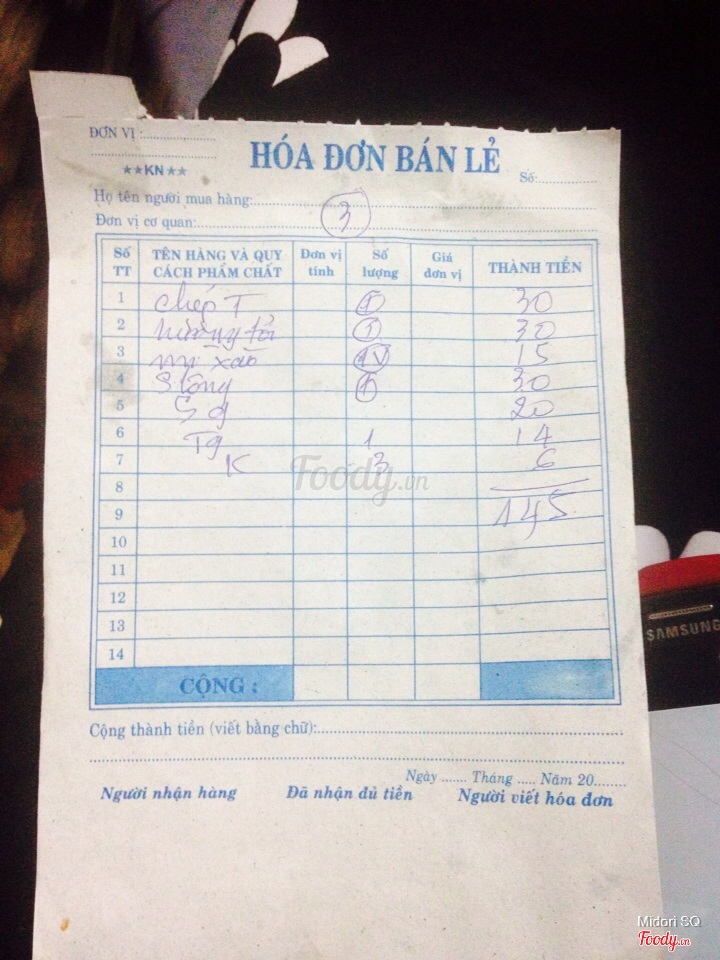 ĐƠN VỊ :
★★KN★★
HÓA ĐƠN BÁN LẺ
Số:
Họ tên người mua hàng:
Đơn vị cơ quan:
3
Số TT TÊN HÀNG VÀ QUY CÁCH PHẨM CHẤT Đơn vị tính Số lượng Giá đơn vị THÀNH TIỀN
1 chép T 1 30
2 1 30
3 mì xào 15
4 1 30
5 Sg 20
6 Tg 1 14
7 K 3 6
8
9 145
10
11
12
13
14
CỘNG :
Cộng thành tiền (viết bằng chữ):
Ngày ....... Tháng ..... Năm 20........
Người nhận hàng Đã nhận đủ tiền Người viết hóa đơn
Foody.vn
SAMSUNG
Midori SQ
Foody.vn